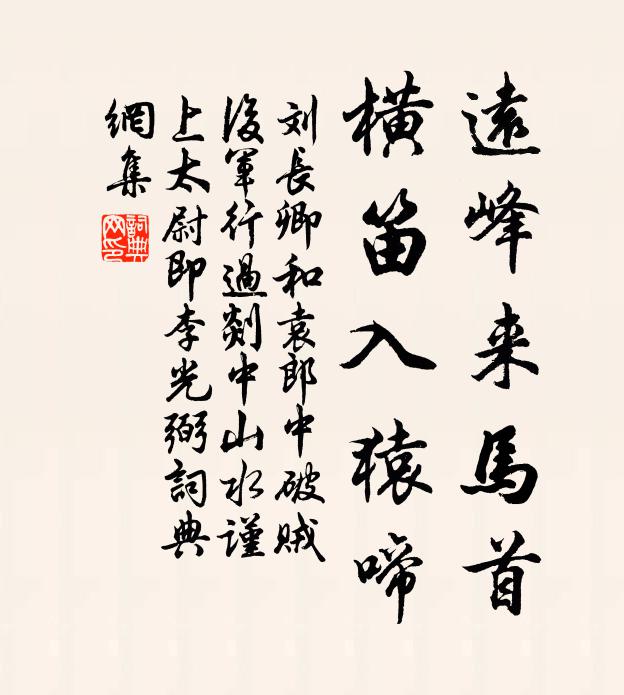 遠峰来馬首
橫笛入猿啼
刘長卿和袁郎中破賊
後軍行過剡中山水謹
上太尉即李光弼詞典
網集
詞典
网印